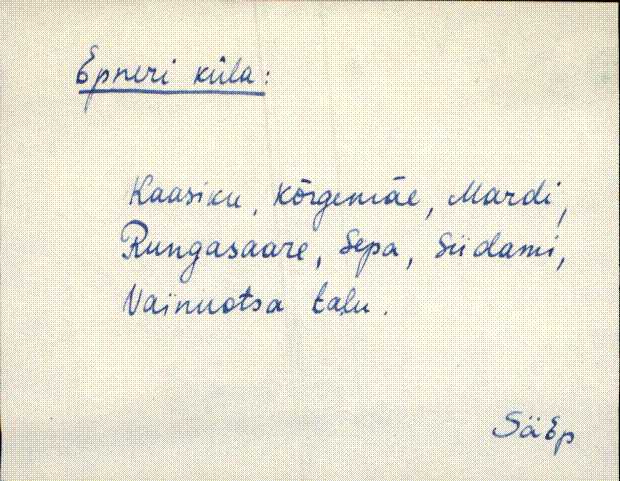 Epneri küla:
Kaasiku, Kõrgemäe, Mardi,
Rungasaare, Sepa, Südami,
Vainuotsa talu.
SäEp